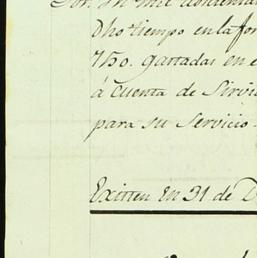 Dho tiempo en la for
750. gastadas en e
á cuenta de Sirvi
para su Servicio.
Existen En 31 de D